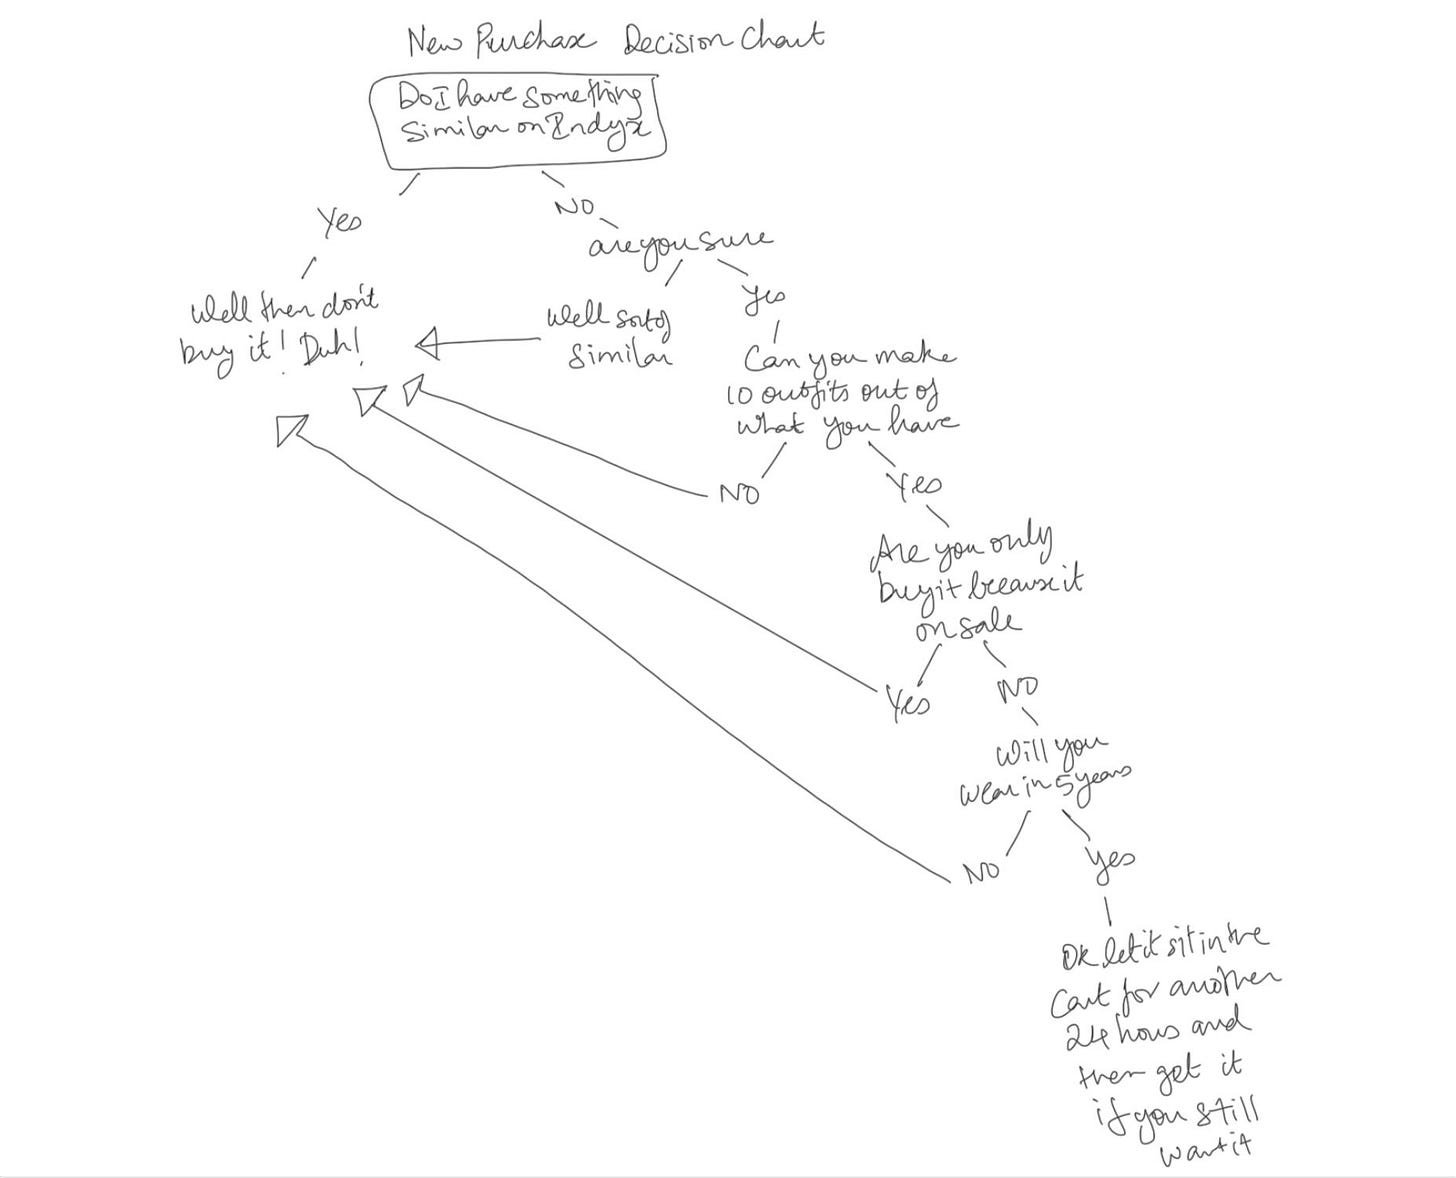 New Purchase Decision Chart
Do I have something
Similar on Indyx
Yes
NO
are you sure
Well then don't
buy it! Duh!
Well sort of
Similar
yes
Can you make
10 outfits out of
what you have
NO
Yes
Are you only
buy it because it
on sale
Yes
NO
Will you
wear in 5 years
NO
yes
Ok let it sit in the
Cart for another
24 hours and
then get it
if you still
want it